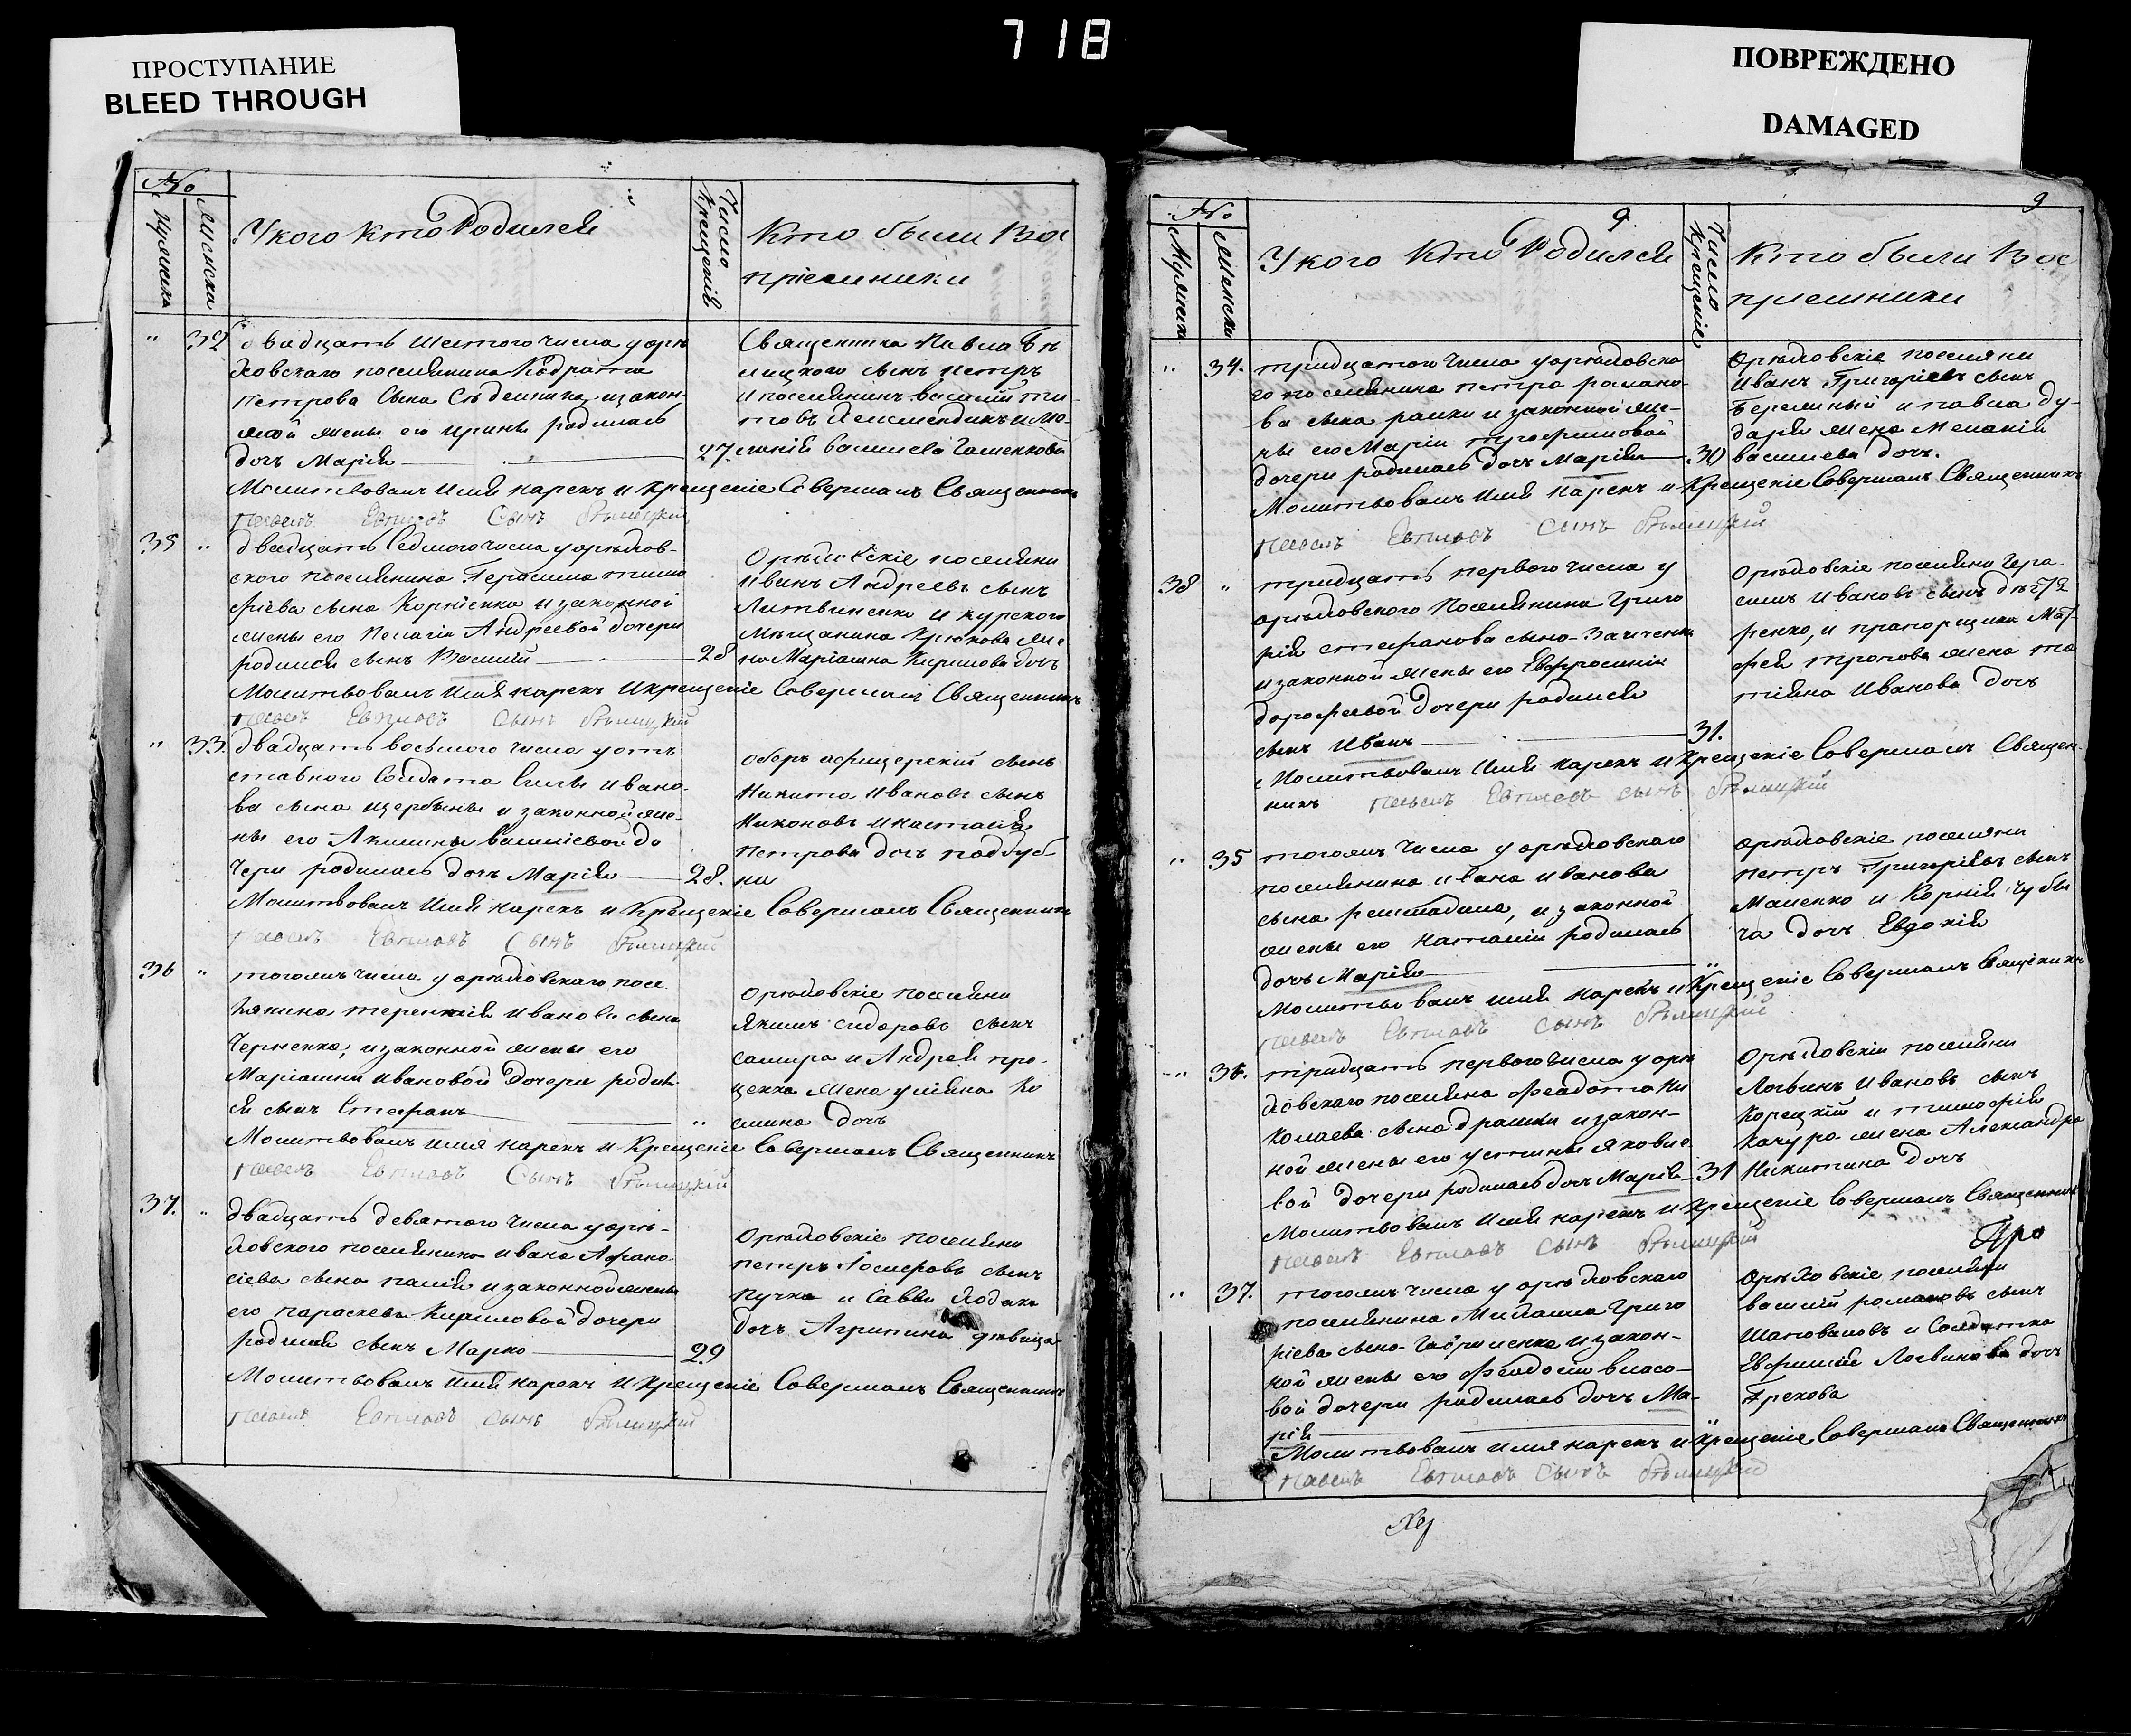 718
ПРОСТУПАНИЕ
BLEED THROUGH
ПОВРЕЖДЕНО
DAMAGED
№
Мужеска
Женска
У кого кто родился
Число крещенія
Кто были вос
пріемники
" 32
двадцать шестого числа у орѣ
ховскаго поселянина Кодрата
петрова сына Сѣделника, и закон-
ной жены его ирины родилась
дочь Марія 27
Священика Павла Бѣ
лицкого сынъ петръ
и поселянинъ василій ти-
товъ
василева
Молитвовалъ имя нарекъ и крещеніе совершалъ Священникъ
павелъ Евтиевъ сынъ Бѣлицкій
35 "
двадцать седмого числа у орѣхов-
ского поселянина Герасима тимо
фіева сына Корніенка и законной
жены его Пелагіи Андреевой дочери
родился сынъ Василій 28
Орѣховскіе поселяни
иванъ Андреевъ сынъ
Литвиненко и курского
мѣщанина Крюкова же
на Маріанна Кирилова дочь
Молитвовалъ имя нарекъ и крещеніе совершалъ Священникъ
павелъ сынъ Бѣлицкій
" 33.
двадцать восьмого числа у от
ставного солдата Силы ивано-
ва сына щербины и законной же-
ны его Акилины василіевой до
чери родилась дочь Марія 28.
оберъ офицерскій сынъ
Никита Ивановъ сынъ
Никоновъ и настасія
петрова дочь
Молитвовалъ имя нарекъ и крещеніе совершалъ Священникъ
павелъ сынъ Бѣлицкій
36 "
тогожъ числа у орѣховскаго посе
лянина терентія иванова сына
Черненка, и законной жены его
Маріанни ивановой дочери родил
ся сынъ Стефанъ "
Орѣховскіе поселяни
Якимъ сидоровъ сынъ
и Андрея про-
ценка жена уліяна Ко
дочь
Молитвовалъ имя нарекъ и крещеніе совершалъ Священникъ
павелъ сынъ Бѣлицкій
37. "
двадцать девятого числа у орѣ-
ховского поселянина ивана Афана
сіева сына палія и законной жены
его параскевы Кириловой дочери
родился сынъ Марко 29
Орѣховскіе поселяни
петръ сынъ
пучка и Савви
дочь Агрипина дѣвица
Молитвовалъ имя нарекъ и крещеніе совершалъ Священникъ
павелъ сынъ Бѣлицкій
9
9
№
Мужеска
Женска
У кого кто родился
Число крещеніе
Кто были вос
приемники
" 34.
тридцатого числа у орѣховско
го поселянина петра романо-
ва сына и законной же-
ны его Маріи трофимовой
дочери родилась дочь Марія 30
Орѣховскіе поселяни
иванъ Григоріевъ сынъ
и павла ду-
даря жена Меланія
василева дочь.
Молитвовалъ имя нарекъ и крещеніе совершалъ Священникъ
павелъ сынъ Бѣлицкій
38 "
тридцать первого числа у
орѣховского поселянина Григо
рія стефанова сына
и законной жены его Евфросиніи
дорофеевой дочери родился
сынъ иванъ 31.
Орѣховскіе поселяни Гера
симъ ивановъ сынъ
и прапорщика Мат-
фея жена та
тіяна иванова дочь
Молитвовалъ имя нарекъ и крещеніе совершалъ Священ-
никъ павелъ сынъ Бѣлицкій
" 35
тогожъ числа у орѣховскаго
поселянина ивана иванова
сына и законной
жены его наталіи родилась
дочь Марія "
Орѣховскіе поселяни
петръ Григоріевъ сынъ
и Корнія чубы
дочь Евдокія
Молитвовалъ имя нарекъ и крещеніе совершалъ Священикъ
павелъ сынъ Бѣлицкій
" 36.
тридцать первого числа у орѣ
ховскаго поселяна феодота Ни
колаева сына драшки и закон-
ной жены его устины яковле
вой дочери родилась дочь Марія 31
Орѣховскіи поселяни
Логвинъ ивановъ сынъ
Корецкій и тимофія
Качура жена Александра
Никитина дочь
Молитвовалъ имя нарекъ и крещеніе совершалъ Священникъ
павелъ сынъ Бѣлицкій
" 37.
тогожъ числа у орѣховскаго
поселянина Михаила Григо
ріева сына Гавриленка и закон-
ной жены его феодосіи власо-
вой дочери родилась дочь Ма-
рія "
Орѣховскіе поселяни
василій романовъ сынъ
Шаповаловъ и Солдатка
Евфимія Логвинова дочь
Молитвовалъ имя нарекъ и крещеніе совершалъ Священникъ
павелъ сынъ Бѣлицкій